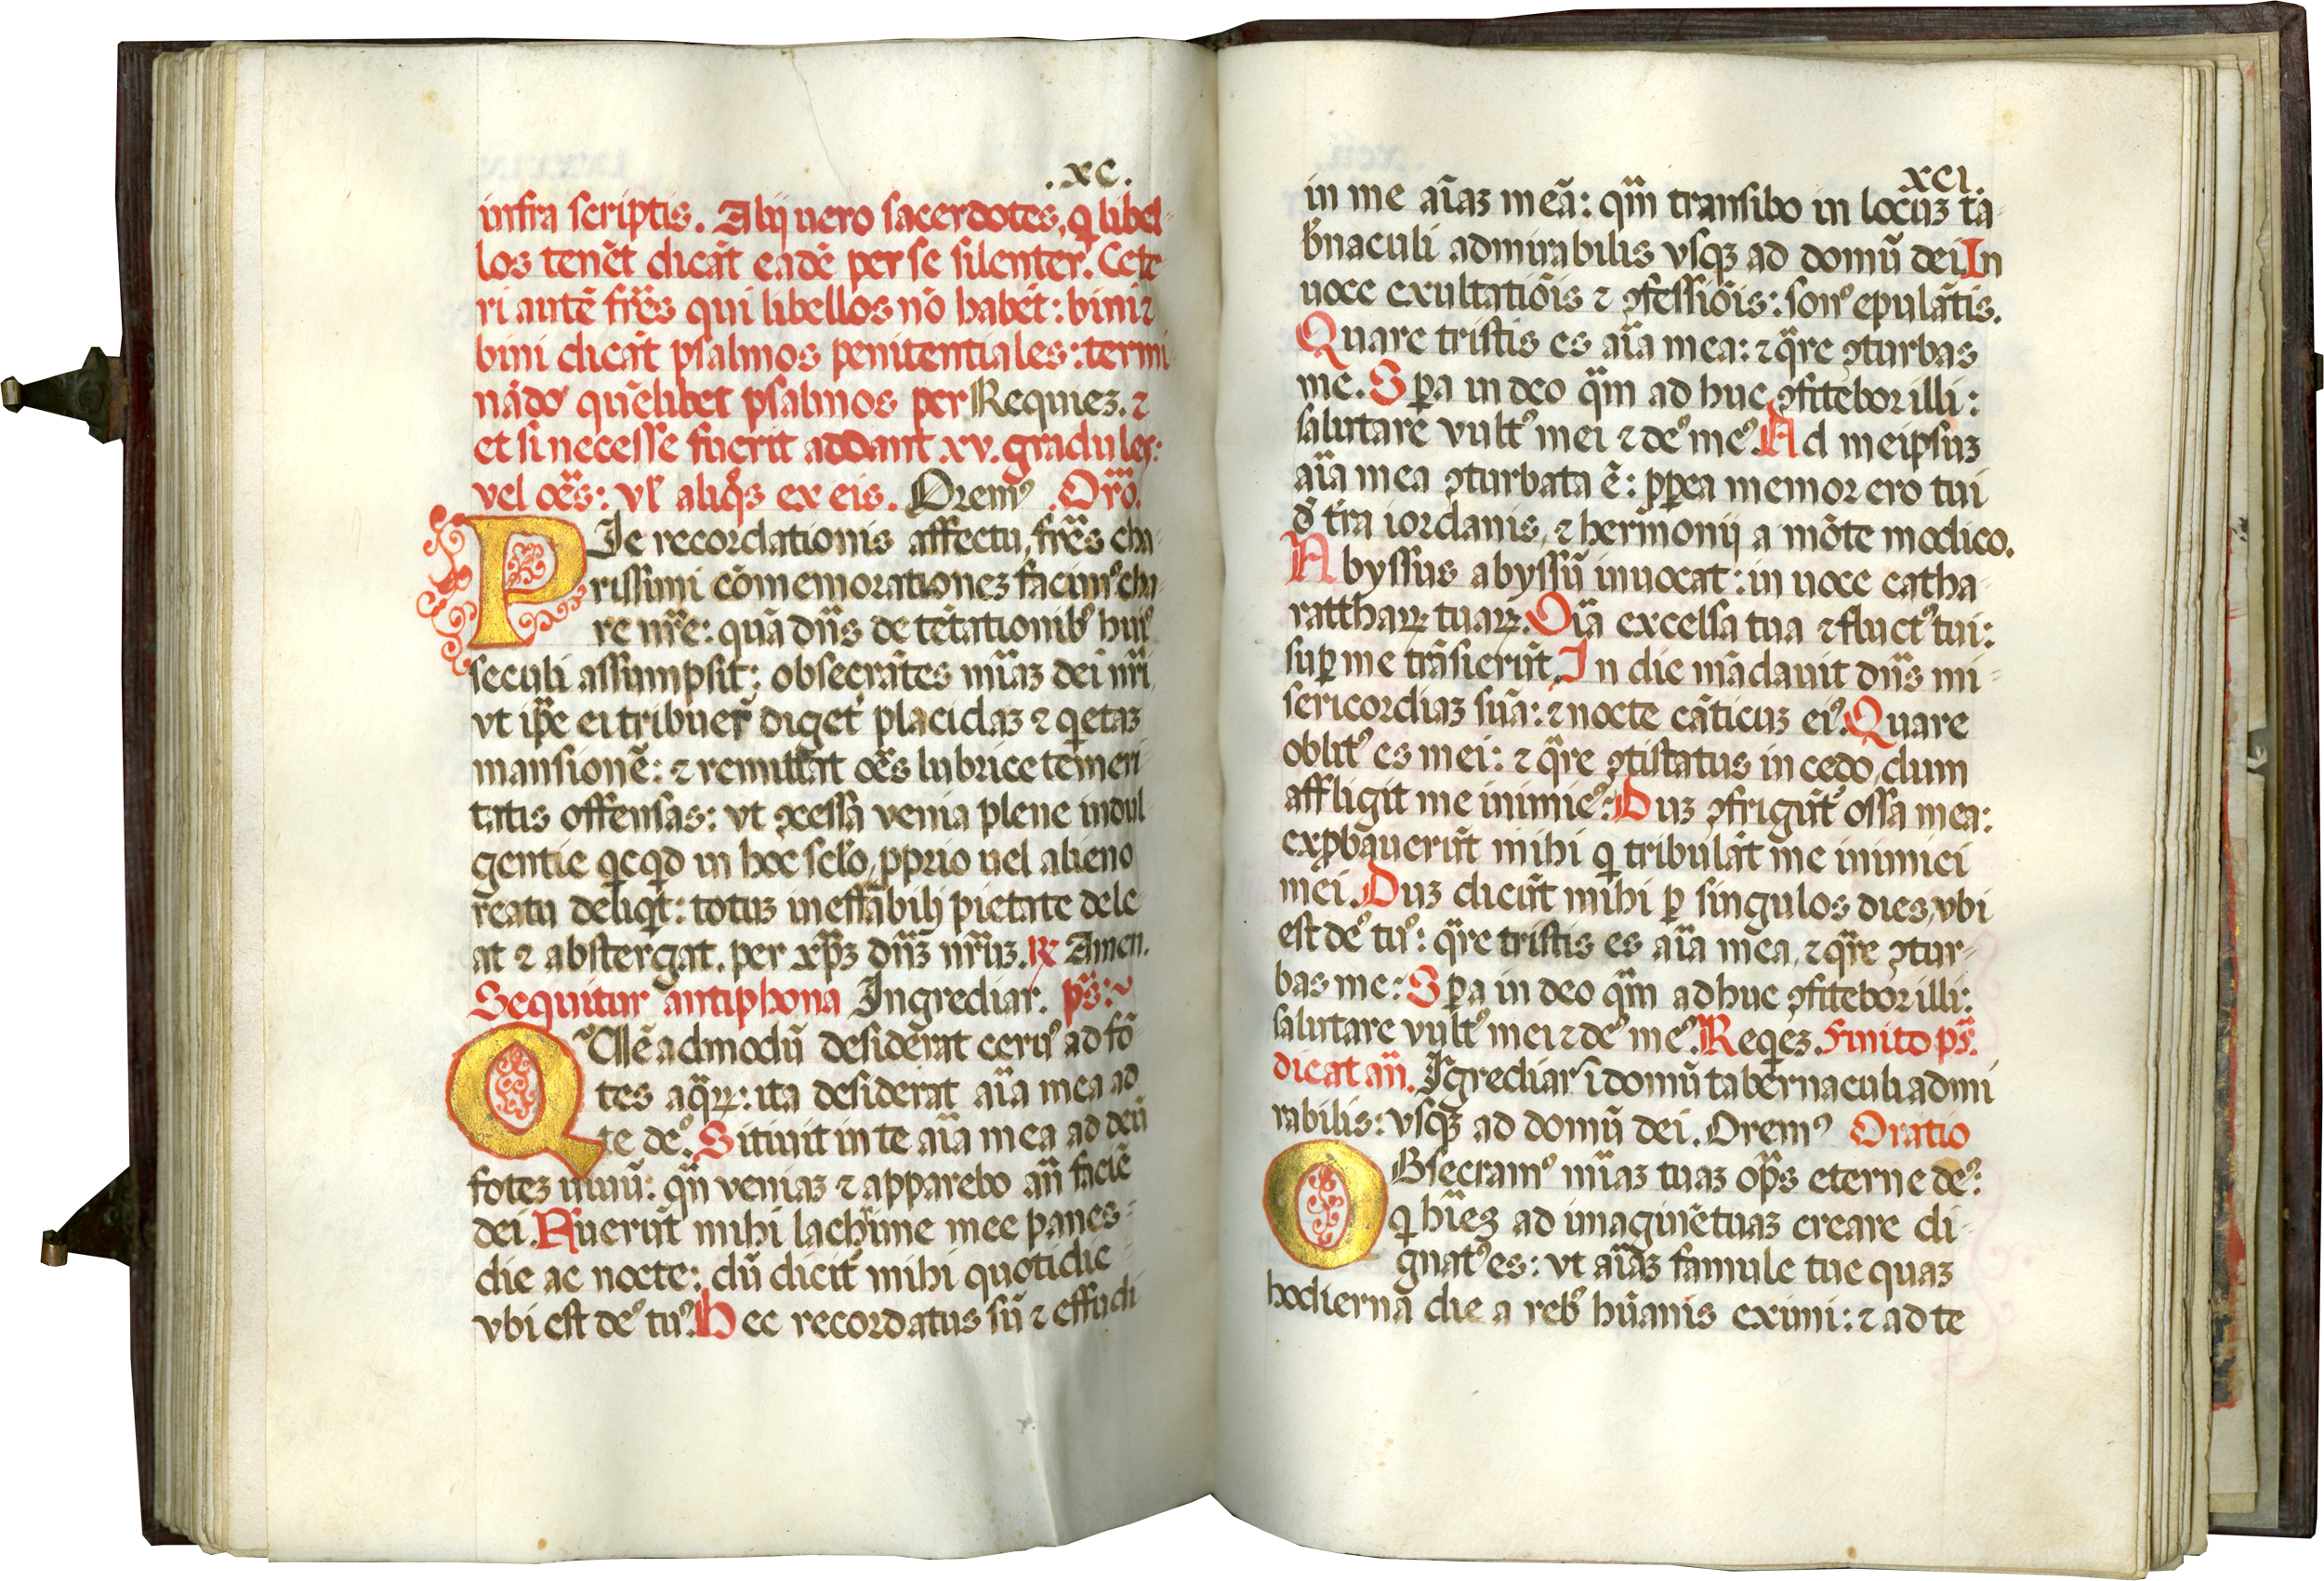 .xc.
infra scriptis. Alij uero sacerdotes, q̃ libel-
los tenẽt dicãt eadẽ per se silenter. Cete-
ri autẽ fr̃es qui libellos nõ habẽt: bini ⁊
bini dicãt psalmos penitentiales: termi-
nãdo quẽlibet psalmos per Requiez. ⁊
et si necesse fuerit addant xv. gradules:
vel oẽs: vl' aliq̃s ex eis. Orem⁹ .Or̃o.
PIe recordationis affectu, fr̃es cha-
rissimi cõmemorationez facim⁹ cha-
re nr̃e: quã dñs de tẽtationib⁹ hui⁹
seculi assumpsit: obsecrãtes mĩaz dei nr̃i,
vt ip̃e ei tribuer̃ diget' placidaz ⁊ q̃etaz
mansionẽ: ⁊ remittat oẽs lubrice temeri-
tatis offensas: vt ꝯcessa venia plene indul-
gentie q̃cq̃d in hoc sclo, ꝓprio uel alieno
reatu deliq̃t: totuz ineffabilj pietate dele-
at ⁊ abstergat. per xp̃z dñz nr̃uz. ℟ Amen.
Sequitur antiphona Ingrediar. p̃s:~
QUẽadmodũ desiderat ceru⁹ ad fõ-
tes aq̃ꝝ: ita desiderat aĩa mea ad
te de⁹. Sitiuit in te aĩa mea ad deũ
fotez uiuũ: qñ veniaz ⁊ apparebo añ faciẽ
dei. Fuerũt mihi lachrime mee panes-
die ac nocte: dũ dicit̃ mihi quotidie-
vbi est de⁹ tu⁹. Hec recordatus sũ ⁊ effudi
xci.
in me aĩaz meã: qm̃ transibo in locuz ta-
b'naculi admirabilis vsqꝫ ad domũ dei In
uoce exultatiõis ⁊ ꝯfessiõis: son⁹ epulãtis.
Quare tristis es aĩa mea: ⁊ q̃re ꝯturbas
me. Sꝑa in deo qm̃ ad huc ꝯfitebor illi:
salutare vult⁹ mei ⁊ de⁹ me⁹. Ad meipsuz
aĩa mea ꝯturbata ẽ: ꝓpea memor ero tui
d̃ tr̃a iordanis, ⁊ hermonij a mõte modico.
Abyssus abyssũ inuocat: in uoce catha-
rattharꝝ tuarꝝ. Oĩa excelsa tua ⁊ fluct⁹ tui:
suꝑ me trãsierũt. In die mãdauit dñs mi-
sericordiaz suã: ⁊ nocte cãticuz ei⁹. Quare
oblit⁹ es mei: ⁊ q̃re ꝯtistatus in cedo, dum
affligit me inimic⁹. Duz ꝯfrigũt' ossa mea:
exꝓbauerũt mihi q̃ tribulãt me inimici
mei. Duz dicũt mihi ꝑ singulos dies, vbi
est de⁹ tu⁹: q̃re tristis es aĩa mea, ⁊ q̃re ꝯtur-
bas me: Sꝑa in deo qm̃ ad huc ꝯfitebor illi:
salutare vult⁹ mei ⁊ de⁹ me⁹. Req̃ez. Finito p̃s.
dicat añ. Ĩgrediar ĩ domũ tabernaculi admi
rabilis: vsqꝫ ad domũ dei. Orem⁹ Oratio
OBsecram⁹ mĩaz tuaz op̃s eterne de⁹:
q̃ hĩez ad imaginẽ tuaz creare di-
gnat⁹ es: vt aĩaz famule tue quaz
hodierna die a reb⁹ hũanis eximi: ⁊ ad te